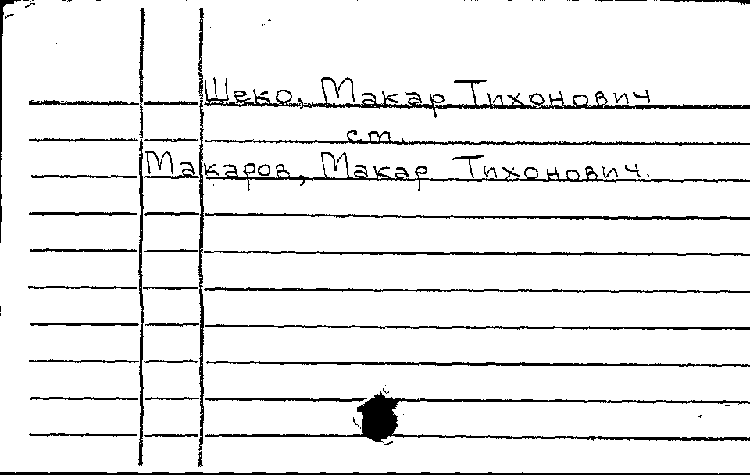 Шеко, Макар Тихонович
ст.
Макаров, Макар Тихонович.